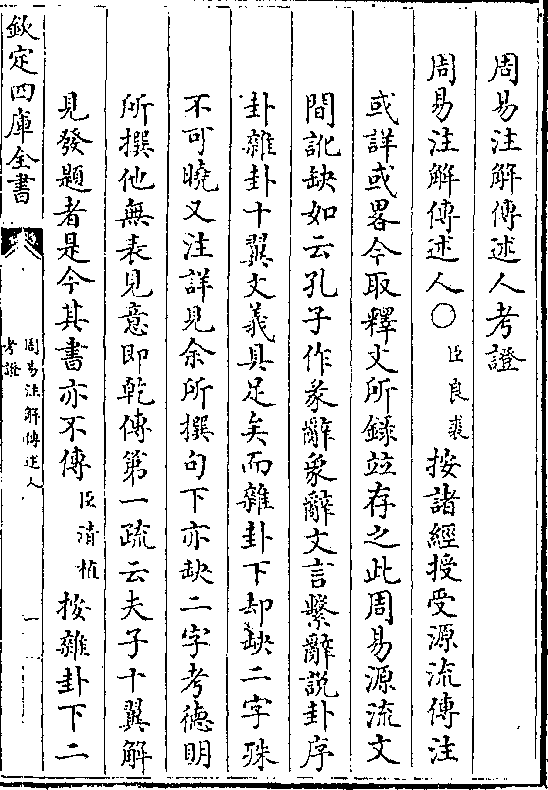 周易注解傳述人考證
周易注解傳述人○臣良裘按諸經授受源流傳注
或詳或畧今取釋文所錄並存之此周易源流文
間訛缺如云孔子作彖辭象辭文言繫辭說卦序
卦雜卦十翼文義具足矣而雜卦下却缺二字殊
不可曉又注詳見余所撰句下亦缺二字考德明
所撰他無表見意即乾傳第一疏云夫子十翼解
見發題者是今其書亦不傳臣清植按雜卦下二
欽定四庫全書
周易注解傳述人
考證
一